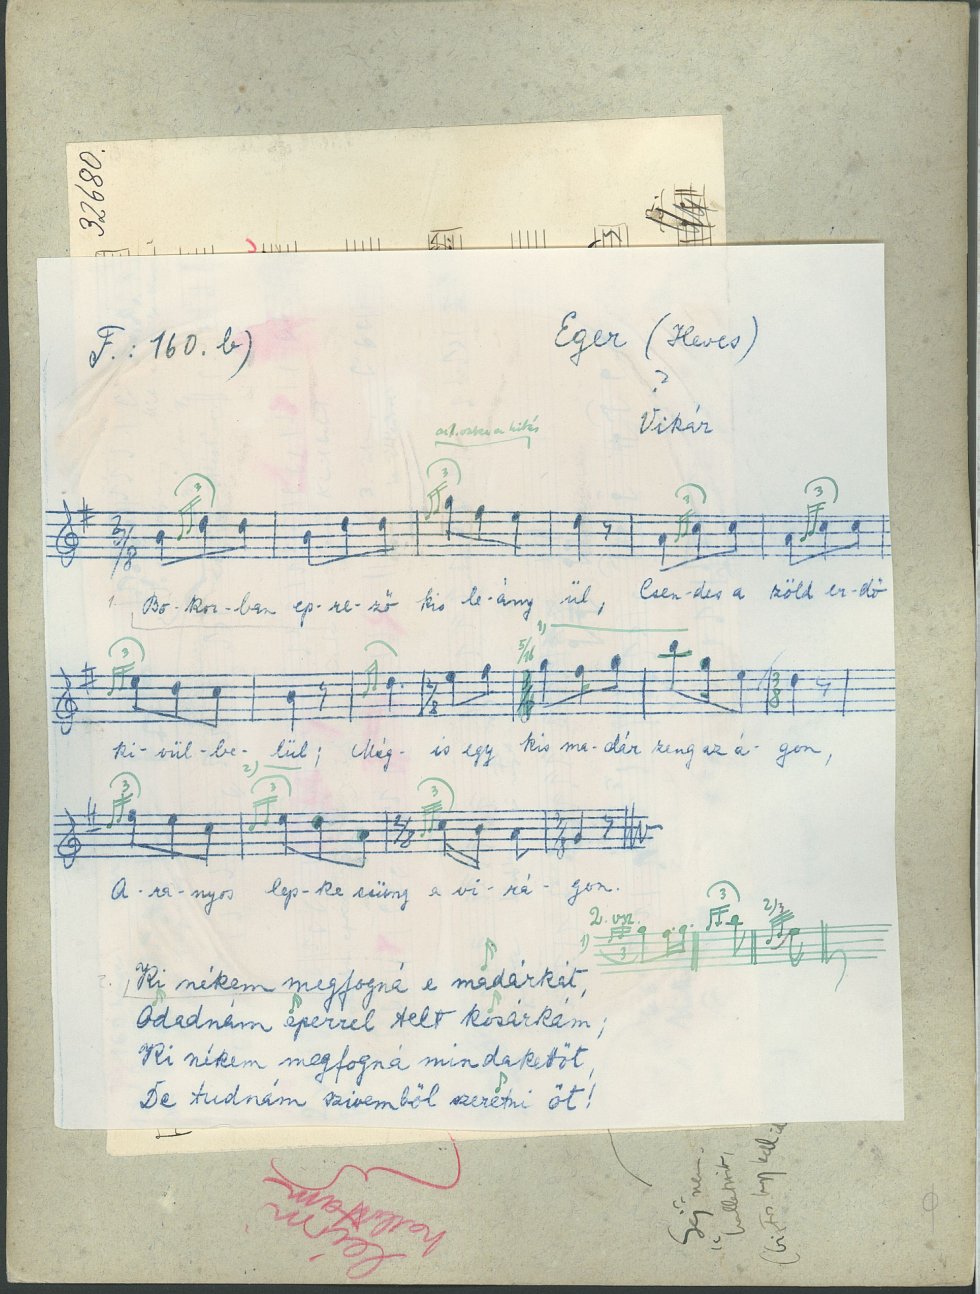 32680.
F.: 160. b)
Eger (Heves)
?
Vikár
3 3 3 3
3/8
1. Bo-kor-ban ep-re-ző kis le-ány ül, Csen-des a zöld er-dő
1)
3 5/16
2/8 3/8
ki-vül-be-lül; Még-is egy kis ma-dár zeng az á-gon,
2)
3 3 3
2/8 3/8
A-ra-nyos lep-ke csüng a vi-rá-gon.
2. vsz.
1) 3 3 2)
2. Ki nékem megfogná e madárkát,
Odadnám eperrel telt kosárkám;
Ki nékem megfogná mindakettőt,
De tudnám szivemből szeretni őt!